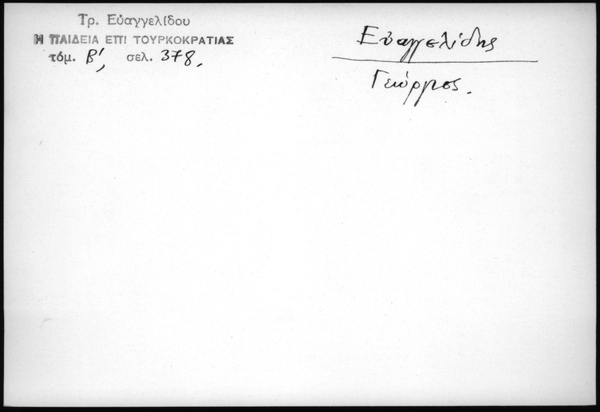 Τρ. Εὐαγγελίδου
Η ΠΑΙΔΕΙΑ ΕΠΙ ΤΟΥΡΚΟΚΡΑΤΙΑΣ
τόμ. Β', σελ. 378.
Εὐαγγελίδης
Γεώργιος.